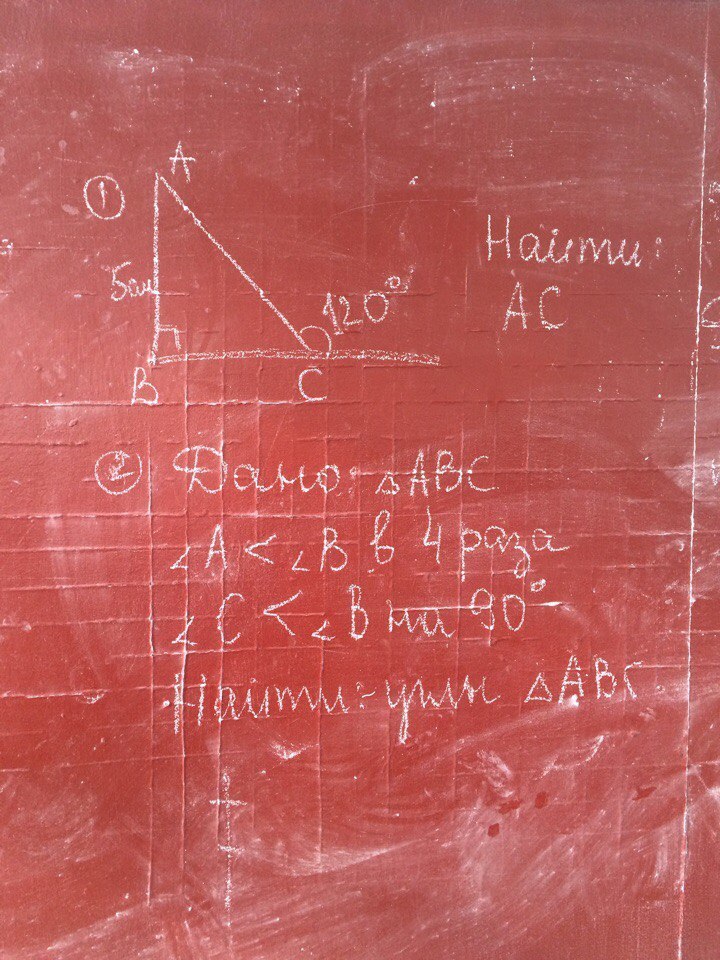 ① A
5см
120°
B C
Найти:
AC
② Дано: △ABC
∠A < ∠B в 4 раза
∠C < ∠B на 90°
Найти: углы △ABC